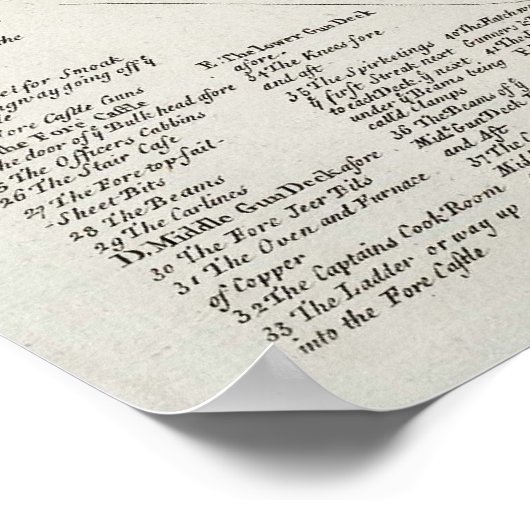 the
for Smoak
going off ẏ
Fore Castle Guns
The Fore Castle
The door of ẏ Bulk head afore
The Officers Cabbins
26 The Stair Case
27 The Fore top sail-
-Sheet Bits
28 The Beams
29 The Carlines
D. Middle Gun Deck afore
30 The Fore Jeer Bits
31 The Oven and Furnace
of Copper
32 The Captains Cook Room
33 The Ladder or way up
into the Fore Castle
The Lower Gun Deck
afore
34 The Knees fore
and aft
35 The Spirketings
ẏ first Streak next
to each Deck, ẏ next
under ẏ Beams being
call'd Clamps
36 The Beams of ẏ
Midḷ. Gun Deck
and Aft
37 The
40 The Hatch
Gunners